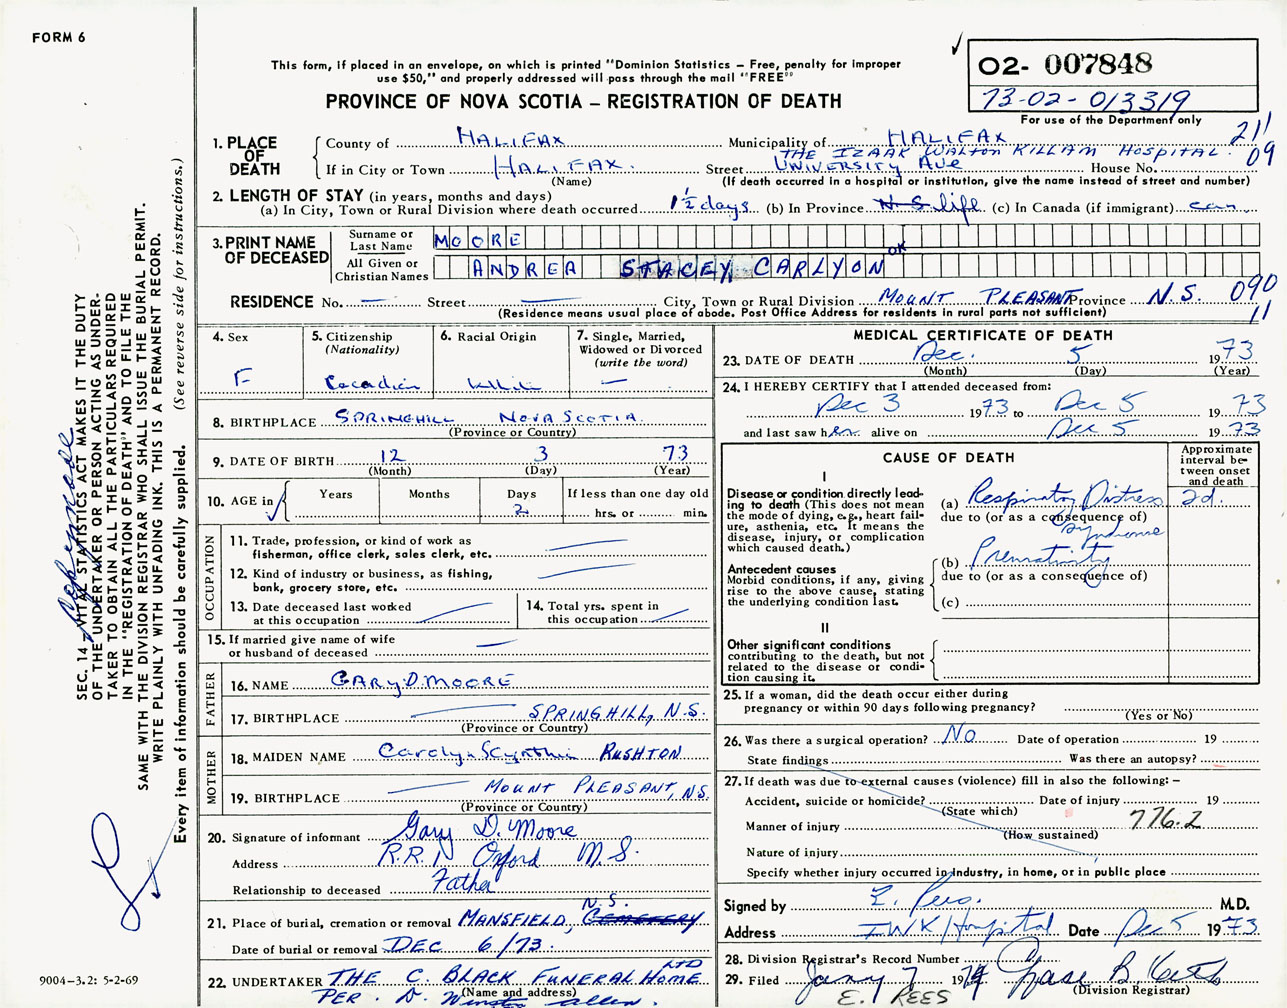 FORM 6
This form, if placed in an envelope, on which is printed "Dominion Statistics – Free, penalty for improper
use $50," and properly addressed will pass through the mail "FREE"
PROVINCE OF NOVA SCOTIA – REGISTRATION OF DEATH
02- 007848
73-02-013319
For use of the Department only
211
09
1. PLACE OF DEATH
County of HALIFAX Municipality of HALIFAX
THE IZAAK WALTON KILLAM HOSPITAL
If in City or Town HALIFAX. Street UNIVERSITY AVE House No.
(Name) (If death occurred in a hospital or institution, give the name instead of street and number)
2. LENGTH OF STAY (in years, months and days)
(a) In City, Town or Rural Division where death occurred 1½ days (b) In Province N S life (c) In Canada (if immigrant) can
3. PRINT NAME OF DECEASED
Surname or Last Name MOORE
OK
All Given or Christian Names ANDREA STACEY CARLYON
RESIDENCE No. — Street — City, Town or Rural Division MOUNT PLEASANT Province N.S. 090
11
(Residence means usual place of abode. Post Office Address for residents in rural parts not sufficient)
4. Sex
F
5. Citizenship
(Nationality)
Canadian
6. Racial Origin
White
7. Single, Married,
Widowed or Divorced
(write the word)
—
8. BIRTHPLACE SPRINGHILL NOVA SCOTIA
(Province or Country)
9. DATE OF BIRTH 12 3 73
(Month) (Day) (Year)
10. AGE in Years Months Days If less than one day old
2 hrs. or min.
OCCUPATION
11. Trade, profession, or kind of work as
fisherman, office clerk, sales clerk, etc. —
12. Kind of industry or business, as fishing,
bank, grocery store, etc. —
13. Date deceased last worked
at this occupation —
14. Total yrs. spent in
this occupation —
15. If married give name of wife
or husband of deceased —
FATHER
16. NAME GARY D. MOORE
17. BIRTHPLACE SPRINGHILL, N.S.
(Province or Country)
MOTHER
18. MAIDEN NAME RUSHTON
19. BIRTHPLACE MOUNT PLEASANT, N.S.
(Province or Country)
20. Signature of informant Gary D. Moore
Address R.R.1 Oxford N.S.
Relationship to deceased Father
N.S.
21. Place of burial, cremation or removal MANSFIELD, CEMETERY
Date of burial or removal DEC 6/73.
22. UNDERTAKER THE C BLACK FUNERAL HOME LTD
(Name and address)
PER. D. Allen.
MEDICAL CERTIFICATE OF DEATH
23. DATE OF DEATH Dec. 5 1973
(Month) (Day) (Year)
24. I HEREBY CERTIFY that I attended deceased from:
Dec 3 1973 to Dec 5 1973
and last saw her alive on Dec 5 1973
CAUSE OF DEATH
Approximate
interval be-
tween onset
and death
I
Disease or condition directly lead-
ing to death (This does not mean
the mode of dying, e.g., heart fail-
ure, asthenia, etc. It means the
disease, injury, or complication
which caused death.)
(a) Respiratory Distress 2d.
due to (or as a consequence of)
Syndrome
Antecedent causes
Morbid conditions, if any, giving
rise to the above cause, stating
the underlying condition last.
(b) Prematurity
due to (or as a consequence of)
(c)
II
Other significant conditions
contributing to the death, but not
related to the disease or condi-
tion causing it.
25. If a woman, did the death occur either during
pregnancy or within 90 days following pregnancy?
(Yes or No)
26. Was there a surgical operation? No Date of operation 19
State findings Was there an autopsy?
27. If death was due to external causes (violence) fill in also the following: –
Accident, suicide or homicide? Date of injury 19
(State which)
Manner of injury 776.2
(How sustained)
Nature of injury
Specify whether injury occurred in Industry, in home, or in public place
Signed by E. Rees. M.D.
Address IWK Hospital Date Dec 5 1973
28. Division Registrar's Record Number
29. Filed Jany 7 1974 Chase B.
(Division Registrar)
E. REES
SEC. 14 – VITAL STATISTICS ACT MAKES IT THE DUTY
OF THE UNDERTAKER OR PERSON ACTING AS UNDER-
TAKER TO OBTAIN ALL THE PARTICULARS REQUIRED
IN THE "REGISTRATION OF DEATH" AND TO FILE THE
SAME WITH THE DIVISION REGISTRAR WHO SHALL ISSUE THE BURIAL PERMIT.
WRITE PLAINLY WITH UNFADING INK. THIS IS A PERMANENT RECORD.
Every item of information should be carefully supplied. (See reverse side for instructions.)
9004-3.2: 5-2-69